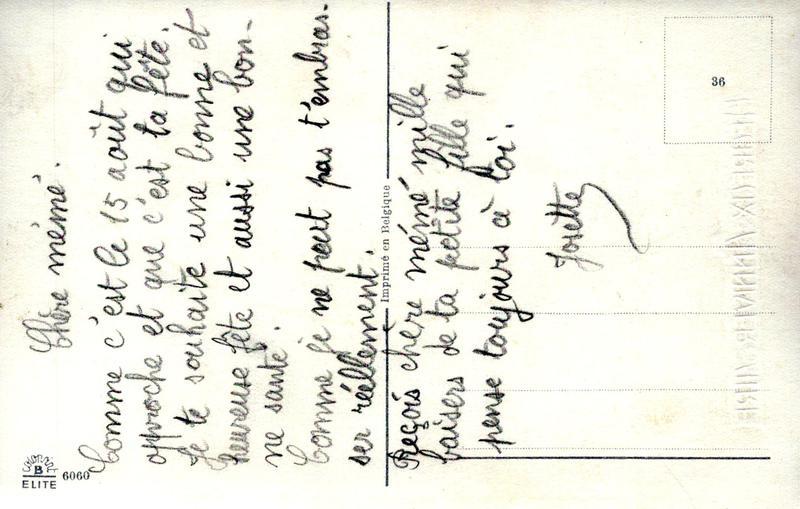 Chère mémé.
Comme c'est le 15 août qui
approche et que c'est ta fête.
Je te souhaite une bonne et
heureuse fête et aussi une bon-
ne santé.
Comme je ne peut pas t'embras-
ser réellement.
Reçois chère mémé mille
baisers de ta petite fille qui
pense toujours à toi.
Josette
Imprimé en Belgique
36
COLORPRINT
B
ELITE
6060